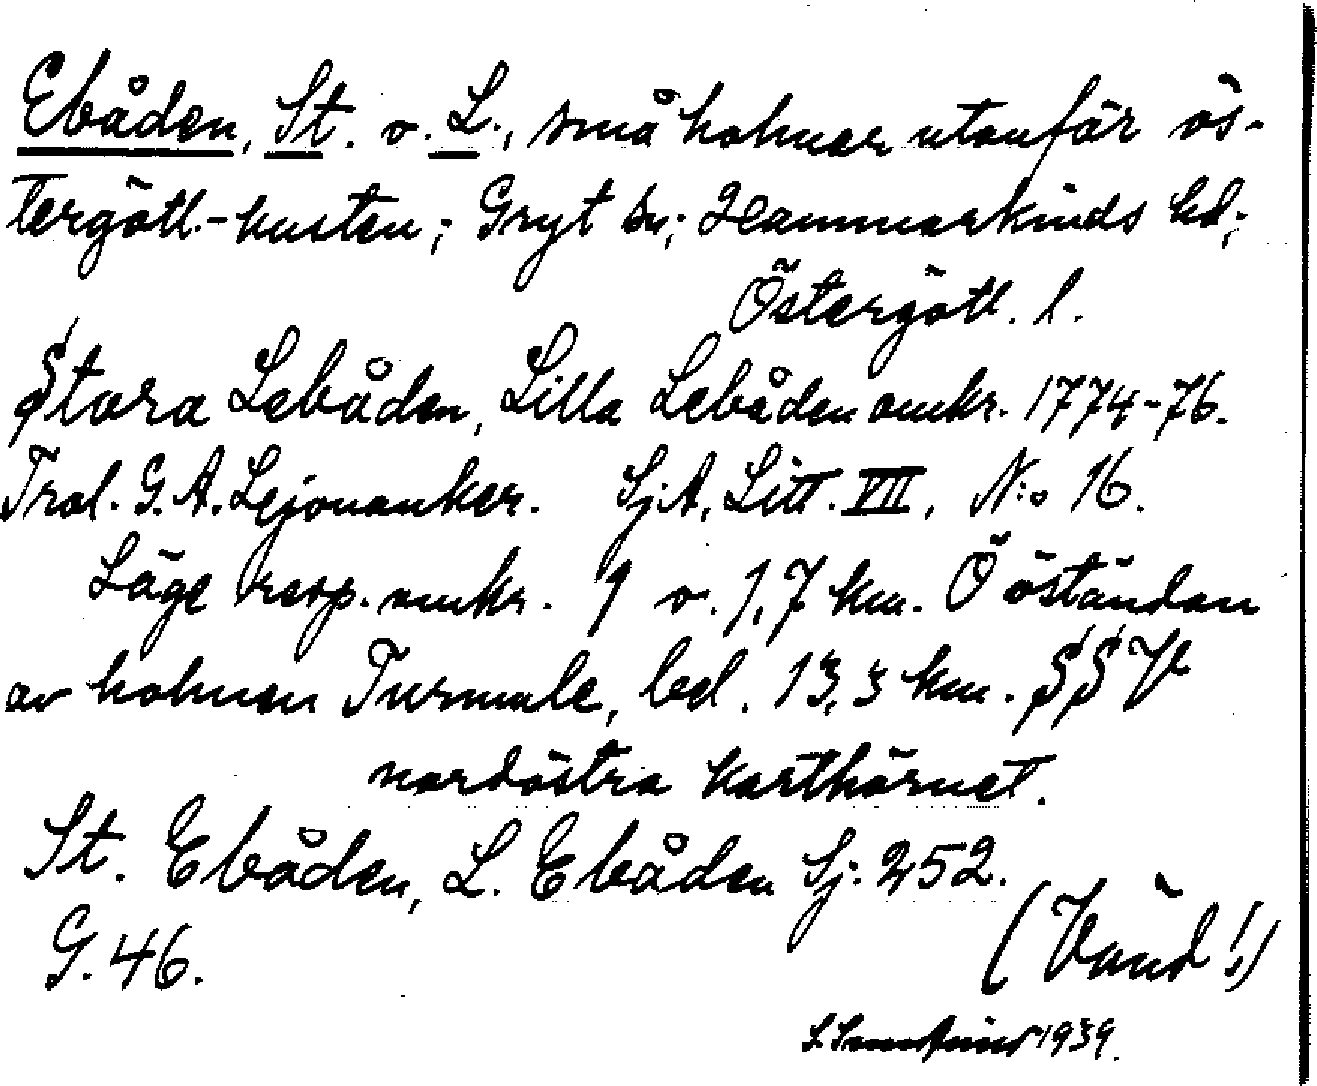 Ebåden, St. o. L., små holmar utanför ös-
tergötl.-kusten; Gryt sn; Hammarkinds hd;
Östergötl. l.
Stora Lebåden, Lilla Lebåden omkr. 1774-76.
Trol. G. A. Lejonanker. Sj.A, Litt. VII, N:o 16.
Läge resp. omkr. 1 o. 1,7 km. Ö öständan
av holmen Turmule, bel. 13,3 km.
nordöstra karthörnet.
St. Ebåden, L. Ebåden Sj: 252.
G. 46.
(Vänd!)
1939.